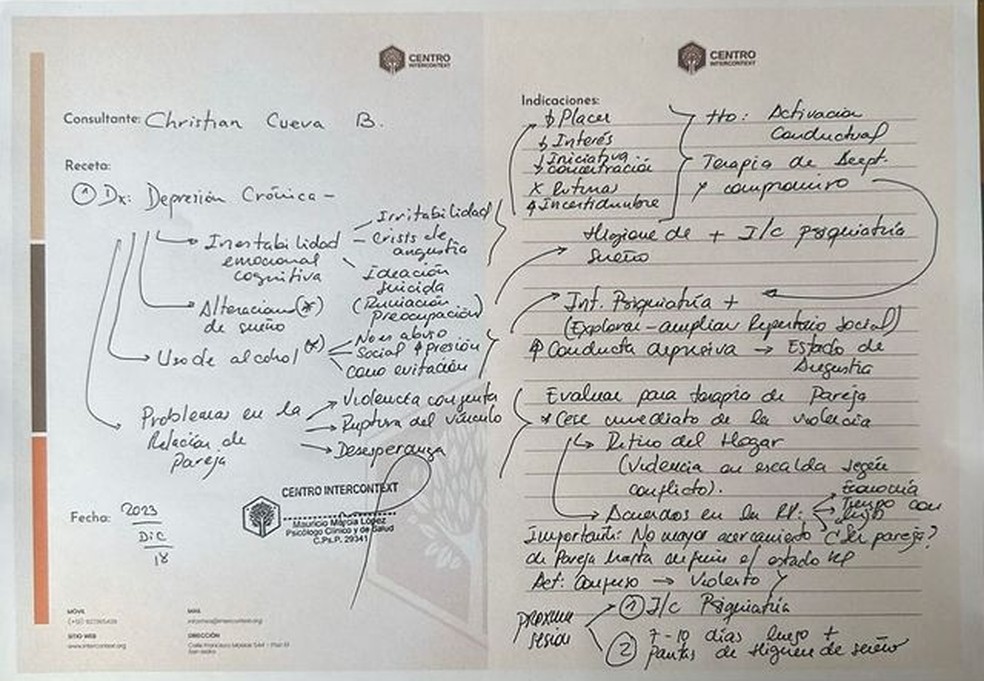 CENTRO
INTERCONTEXT
Consultante: Christian Cueva B.
Receta:
① Dx: Depresión Crónica -
Inestabilidad
emocional
cognitiva
- Irritabilidad
- Crisis de
angustia
Ideación
suicida
(Rumiación
Preocupación)
Alteracion (*)
de sueño
Uso de alcohol (*)
No es abuso
Social ↑ Presión
como evitación
Problemas en la
Relación de
Pareja
Violencia conjunta
Ruptura del vínculo
Desesperanza
Fecha: 2023
Dic
18
CENTRO INTERCONTEXT
Mauricio Murcia López
Psicólogo Clínico y de Salud
C.Ps.P. 29341
MÓVIL
MAIL
SITIO WEB
www.intercontext.org
DIRECCIÓN
San Isidro
CENTRO
INTERCONTEXT
Indicaciones:
↓ Placer
↓ Interés
↓ Iniciativa
↓ concentración
X Rutinas
↑ Incertidumbre
tto: Activación
Conductual
Terapia de Acept.
y compromiso
Higiene de + I/c psiquiatría
sueño
Int. Psiquiatría +
(Explorar - ampliar Repertorio Social)
↑ Conducta depresiva → Estado de
Angustia
Evaluar para terapia de Pareja
* Cese inmediato de la violencia
Retiro del Hogar
(Violencia en escalda según
conflicto).
Acuerdos en la RP:
Economía
Tiempo con
Important: No mayor acercamiento (Ser pareja?
de Pareja hasta definir el estado RP
Act: Confuso → Violento y
Proxima
sesión
① I/c Psiquiatría
② 7-10 días luego +
pautas de Higiene de sueño